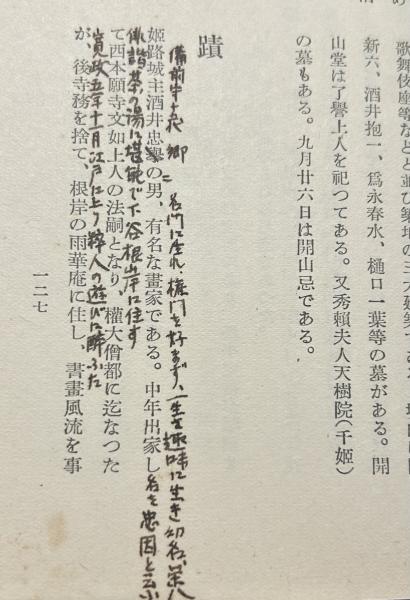 歌舞伎座等などと並び築地の三大建築である。
新六、酒井抱一、爲永春水、樋口一葉等の墓がある。開
山堂は了譽上人を祀つてある。又秀頼夫人天樹院(千姫)
の墓もある。九月廿六日は開山忌である。
蹟
備前守忠 郷 ニ 名門に生れ 権門を好まず、一生を趣味に生き幼名、栄八
姫路城主酒井忠擧の男、有名な畫家である。中年出家し名を忠因と云ふ
俳諧茶の湯に堪能で下谷根岸に住す
て西本願寺文如上人の法嗣となり、權大僧都に迄なつた
寛政五年十一月江戸に上り粋人の遊びに酔ふた
が、後寺務を捨て、根岸の雨華庵に住し、書畫風流を事
一二七